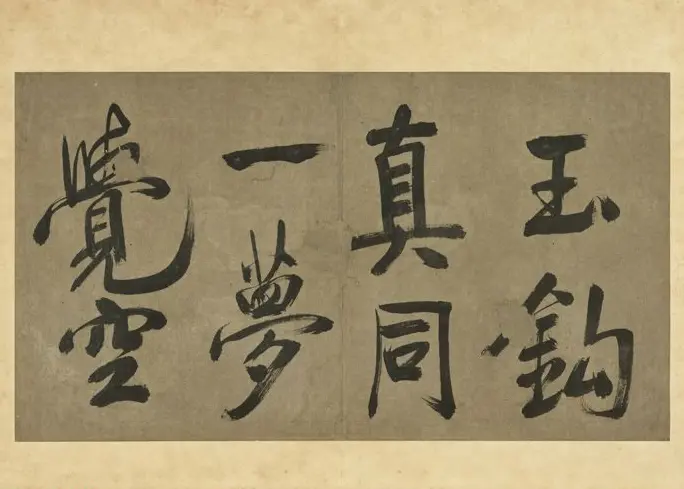 玉鈎
真同
一夢
覺空